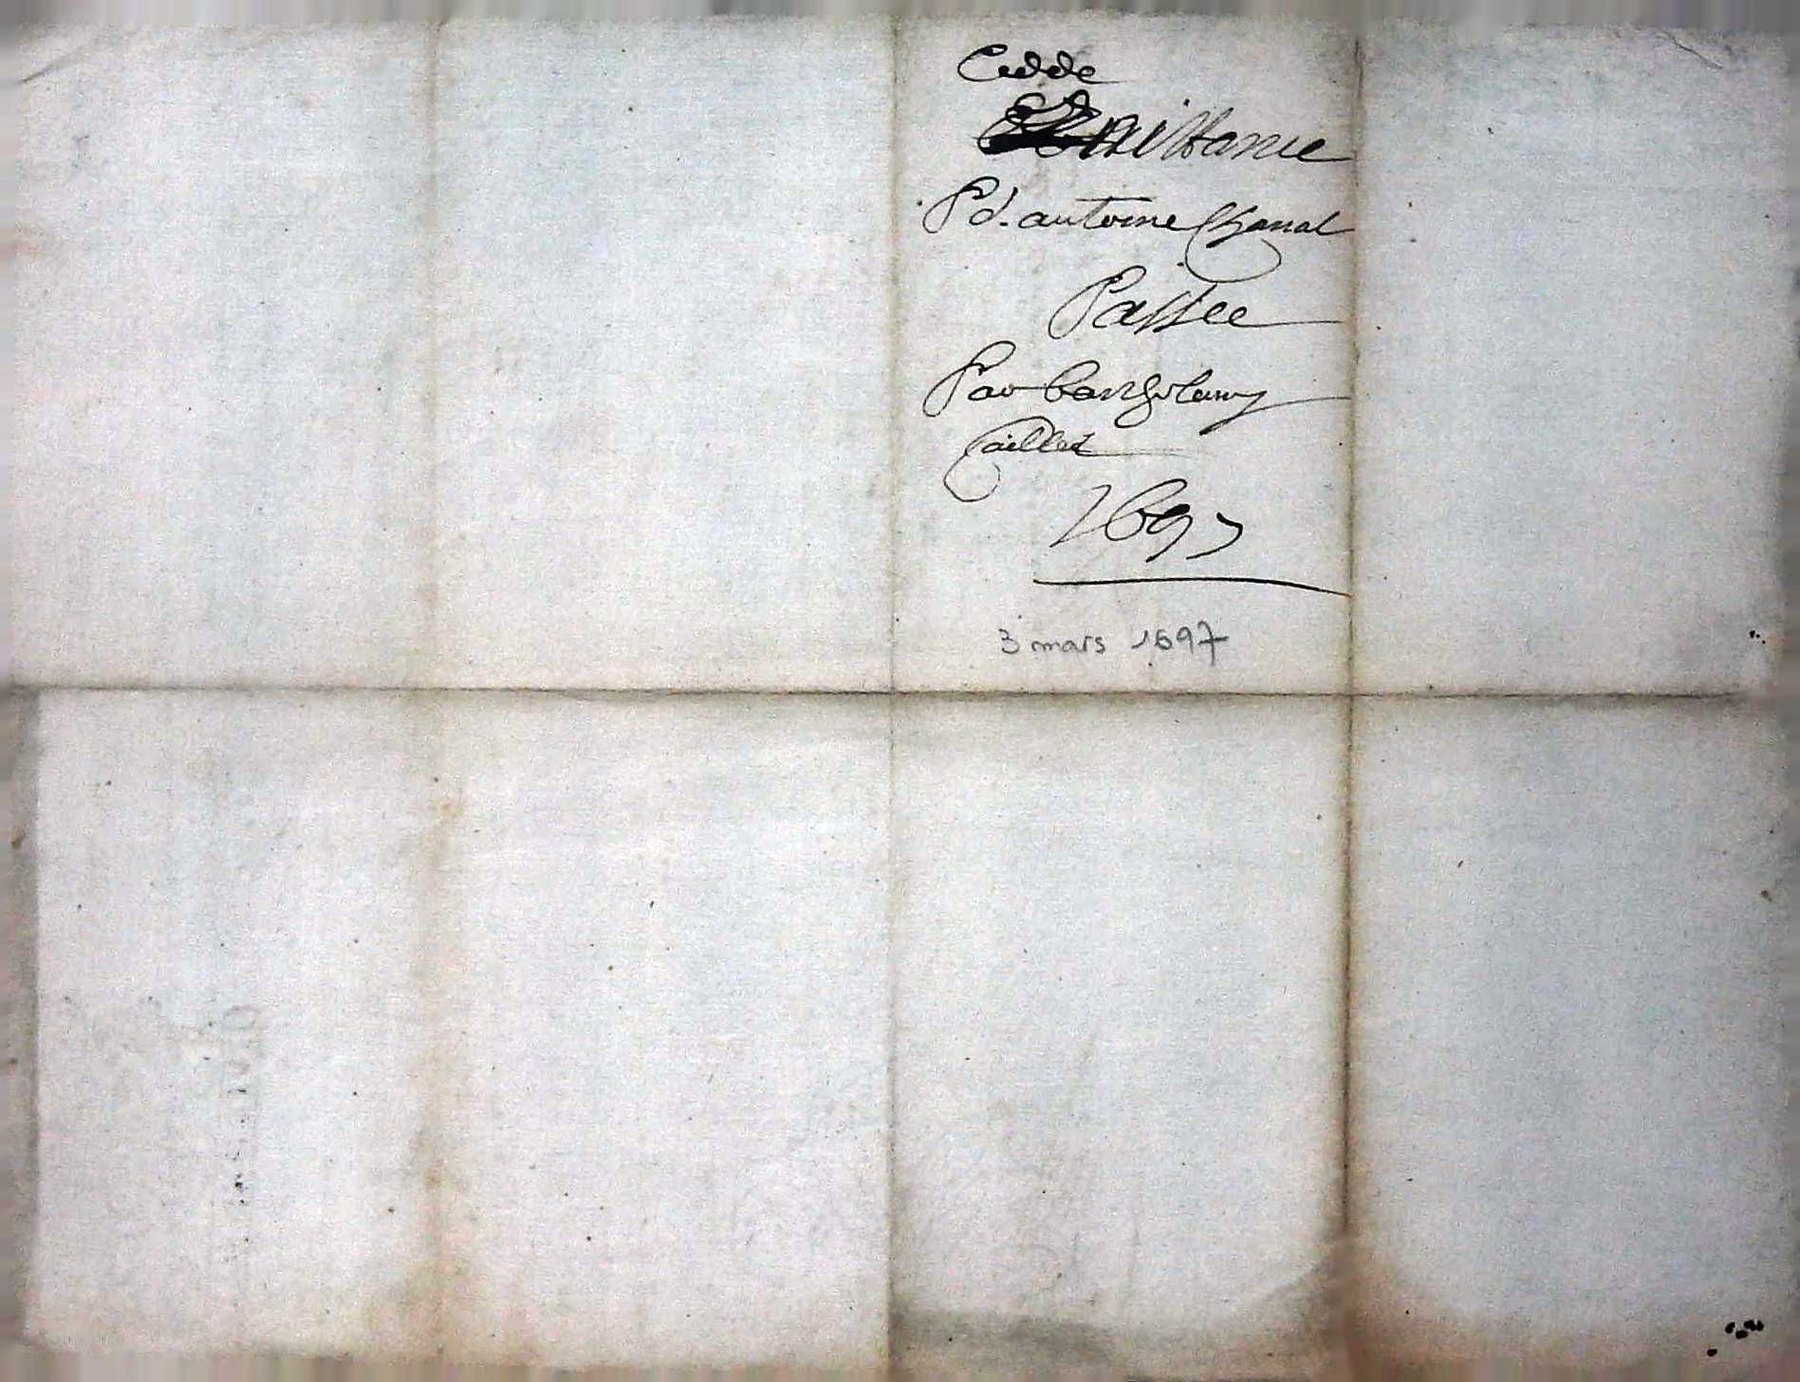 Cedde
Quittance
Pd. antoine Chanal
Passee
Par barthelemy
Caillet
1697
3 mars 1697